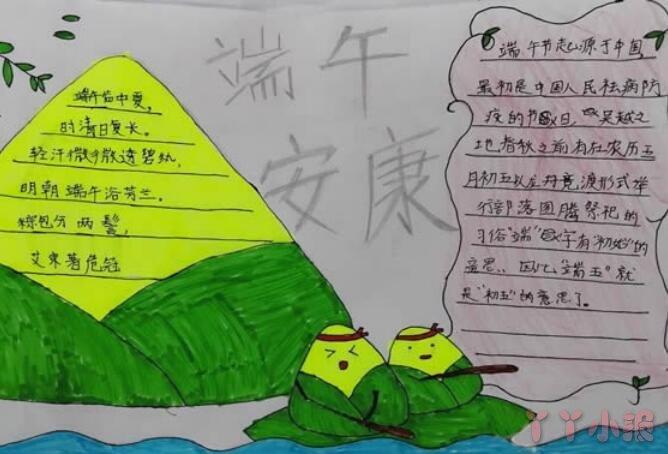 端午
安康
端午临中夏，
时清日复长。
轻汗微微透碧纨，
明朝端午浴芳兰。
粽包分两髻，
艾束著危冠
端午节起源于中国，
最初是中国人民祛病防
疫的节日，吴越之
地春秋之前有在农历五
月初五以龙舟竞渡形式举
行部落图腾祭祀的
习俗"端"字有"初始"的
意思，因此"端五"就
是"初五"的意思了。
丫丫小报